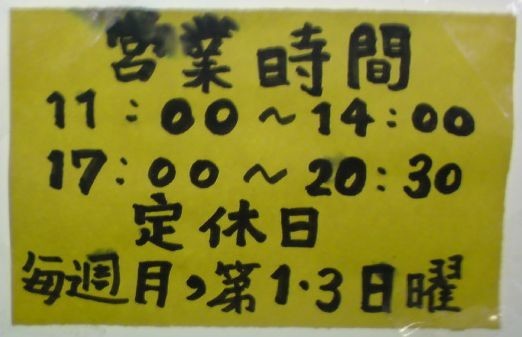 営業時間
11:00～14:00
17:00～20:30
定休日
毎週月,第1・3日曜